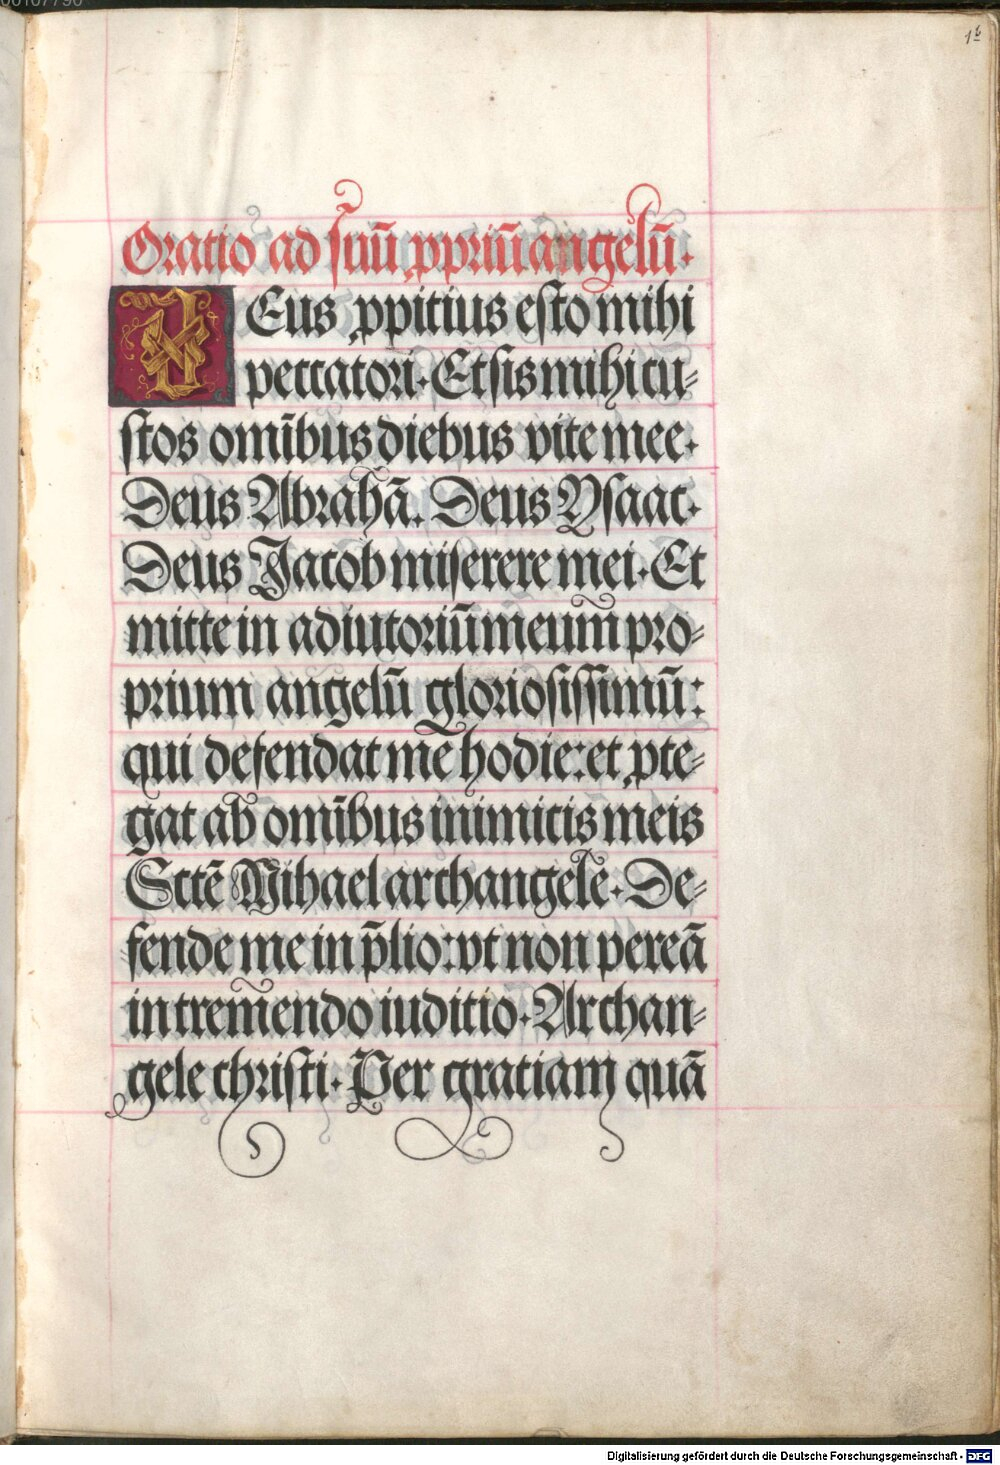 16
Oratio ad suū ꝓpriū angelū.
DEus ꝓpitius esto mihi
peccatori. Et sis mihi cu-
stos omībus diebus vite mee.
Deus Abrahā. Deus Ysaac.
Deus Jacob miserere mei. Et
mitte in adiutoriū meum pro-
prium angelū gloriosissimū:
qui defendat me hodie: et ꝓte-
gat ab omībus inimicis meis
Sctē Mihael archangele. De-
fende me in p̄lio: vt non pereā
in tremendo iuditio. Archan-
gele christi. Per gratiam quā
Digitalisierung gefördert durch die Deutsche Forschungsgemeinschaft - DFG